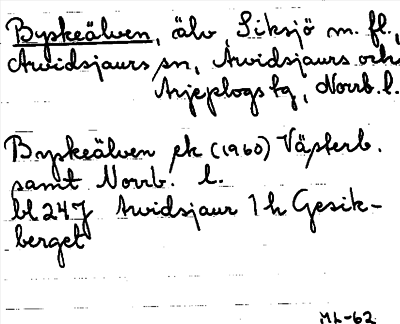 Byskeälven, älv, Siksjö m. fl.,
Arvidsjaurs sn, Arvidsjaurs och
Arjeplogs tg, Norrb. l.
Byskeälven ek (1960) Västerb.
samt Norrb. l.
bl 24 J Arvidsjaur 1 h Gesik-
berget
ML-62